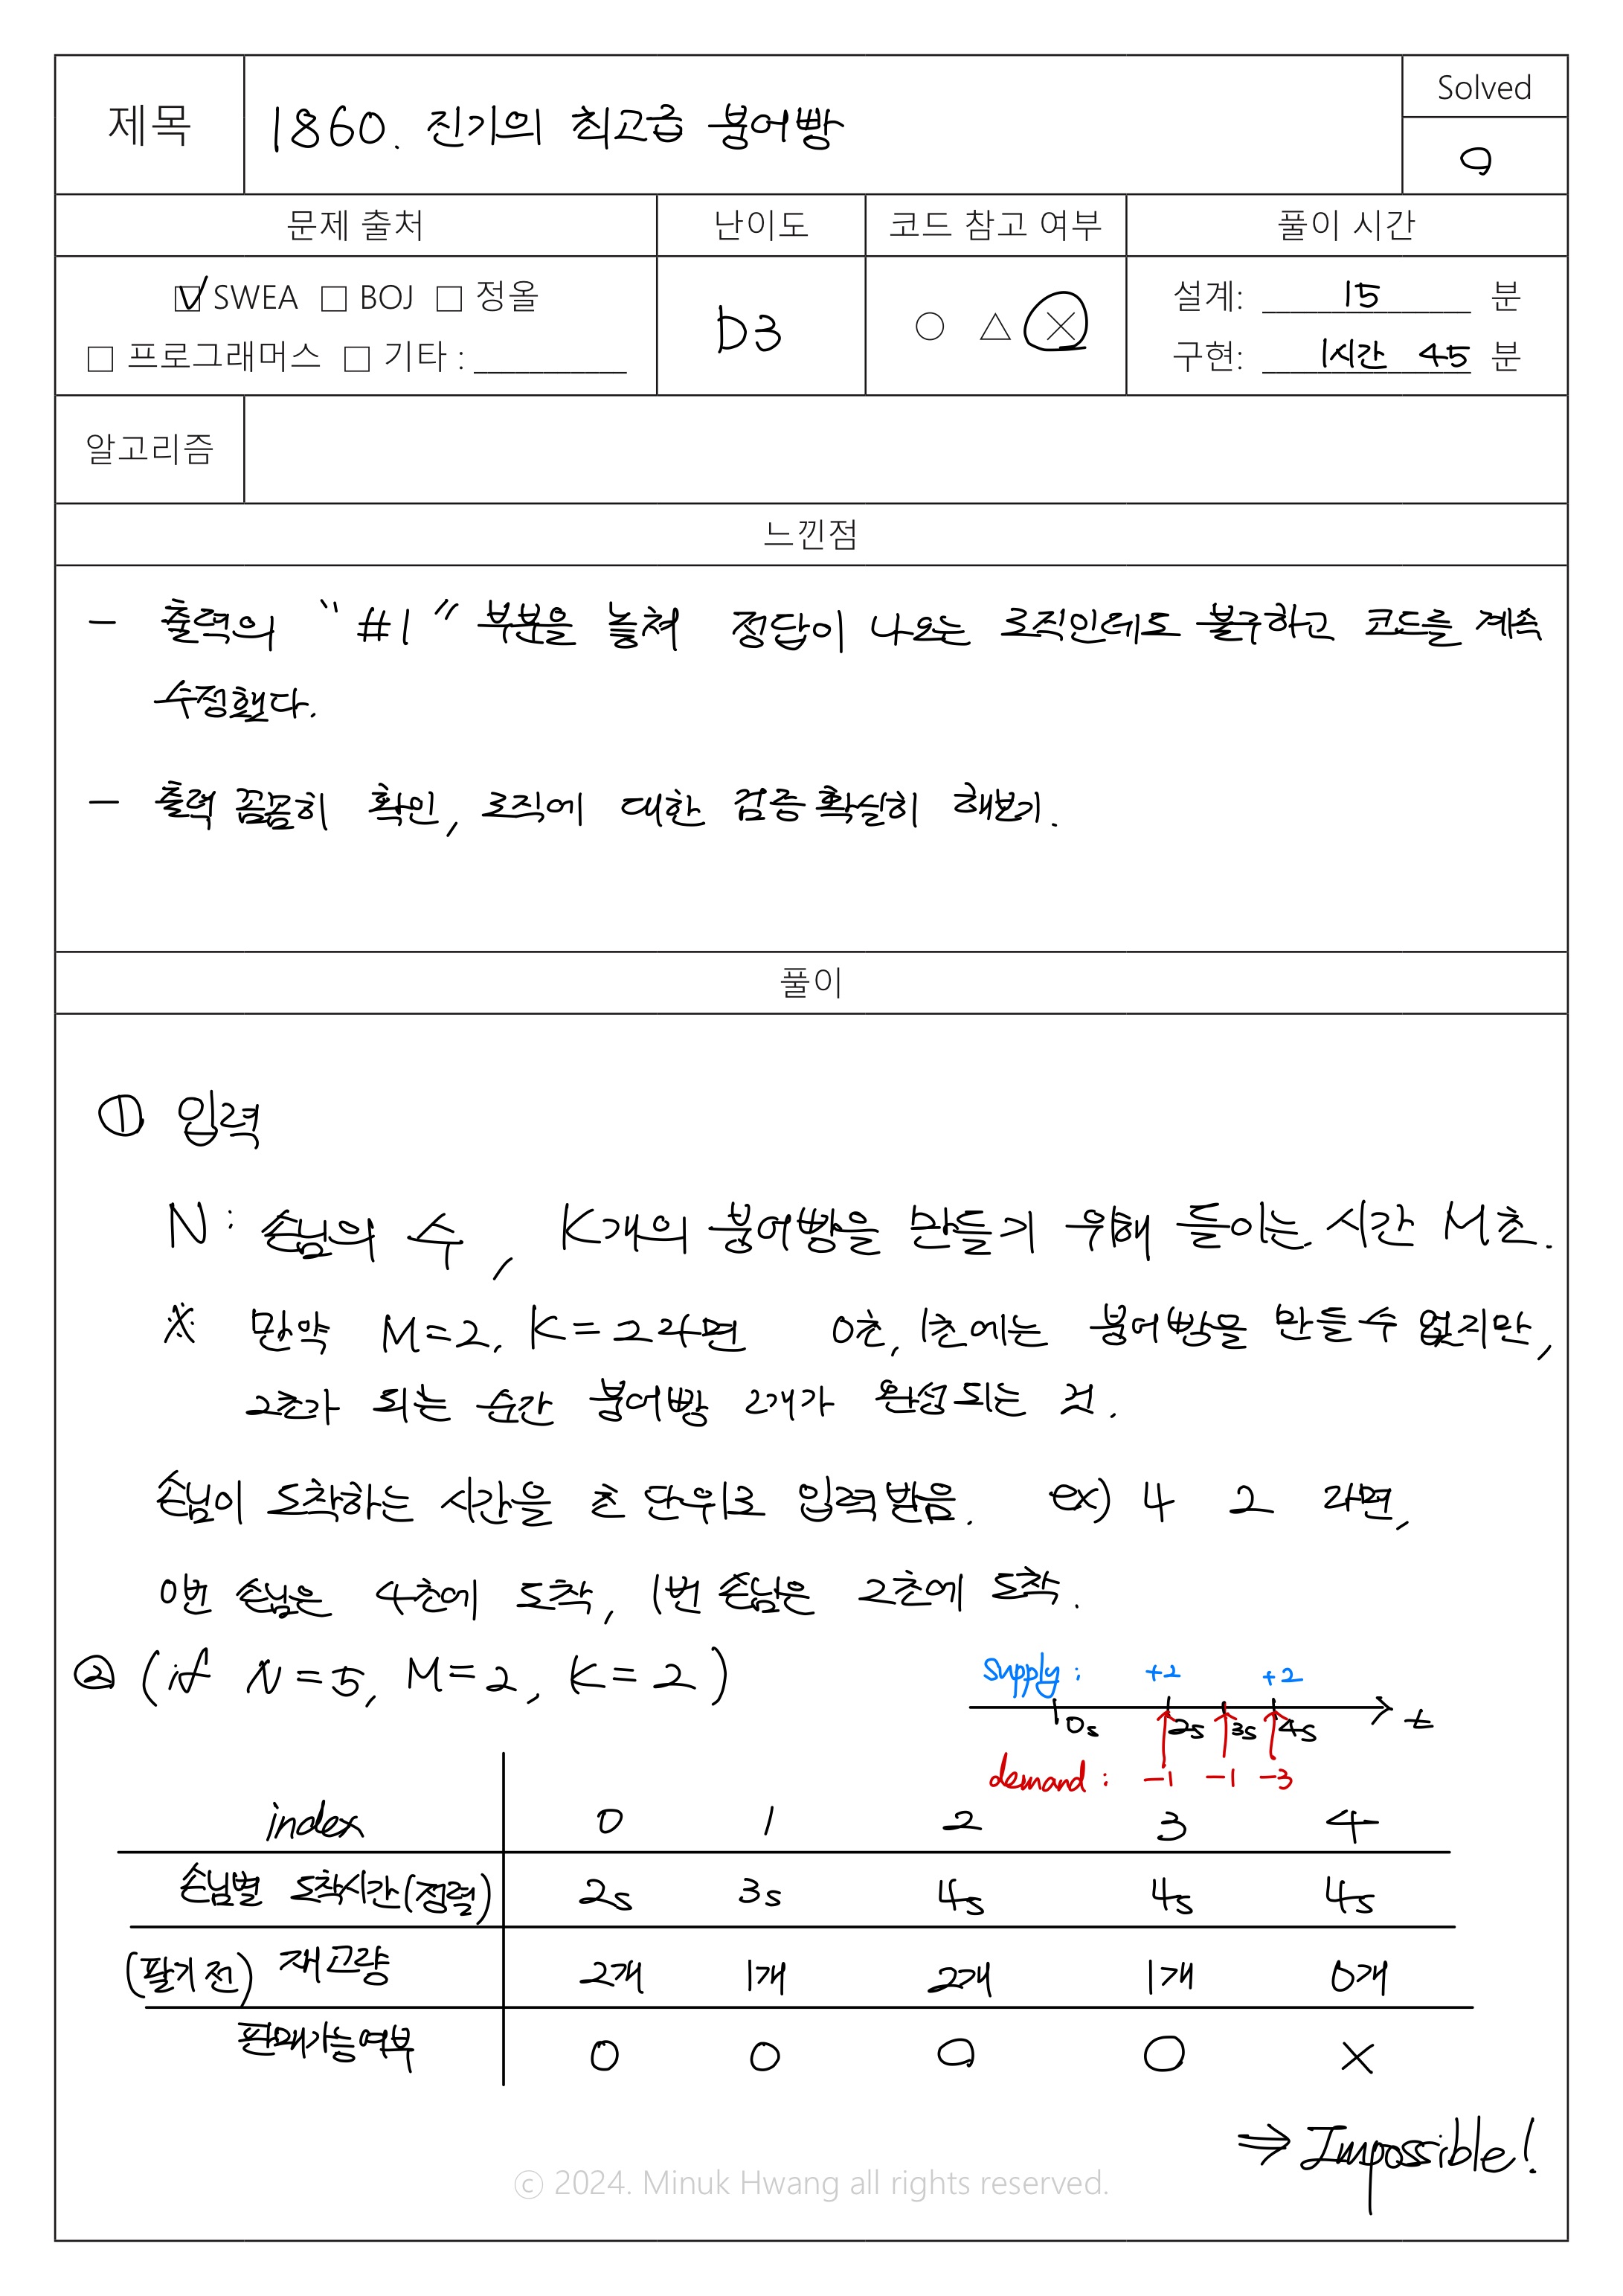 제목
1860. 진기의 최고급 붕어빵
Solved
O
문제 출처
난이도
코드 참고 여부
풀이 시간
☑ SWEA □ BOJ □ 정올
□ 프로그래머스 □ 기타 : __________
D3
○ △ ×
설계: 15 분
구현: 1시간 45 분
알고리즘
느낀점
- 출력의 "#1" 부분을 놓쳐 정답이 나오는 로직인데도 불구하고 코드를 계속
수정했다.
- 출력 꼼꼼히 확인, 로직에 대한 검증 확실히 해보기.
풀이
① 입력
N : 손님의 수, K개의 붕어빵을 만들기 위해 들이는 시간 M초.
※ 만약 M=2, K=2라면 0초, 1초에는 붕어빵을 만들 수 없지만,
2초가 되는 순간 붕어빵 2개가 완성되는 것.
손님이 도착하는 시간을 초 단위로 입력받음. ex) 4 2 라면,
0번 손님은 4초에 도착, 1번 손님은 2초에 도착.
② (if N=5, M=2, K=2)
supply : +2 +2
0s 2s 3s 4s t
demand : -1 -1 -3
index 0 1 2 3 4
손님별 도착시간(정렬) 2s 3s 4s 4s 4s
(팔기 전) 재고량 2개 1개 2개 1개 0개
판매가능여부 O O O O X
⇒ Impossible!
ⓒ 2024. Minuk Hwang all rights reserved.